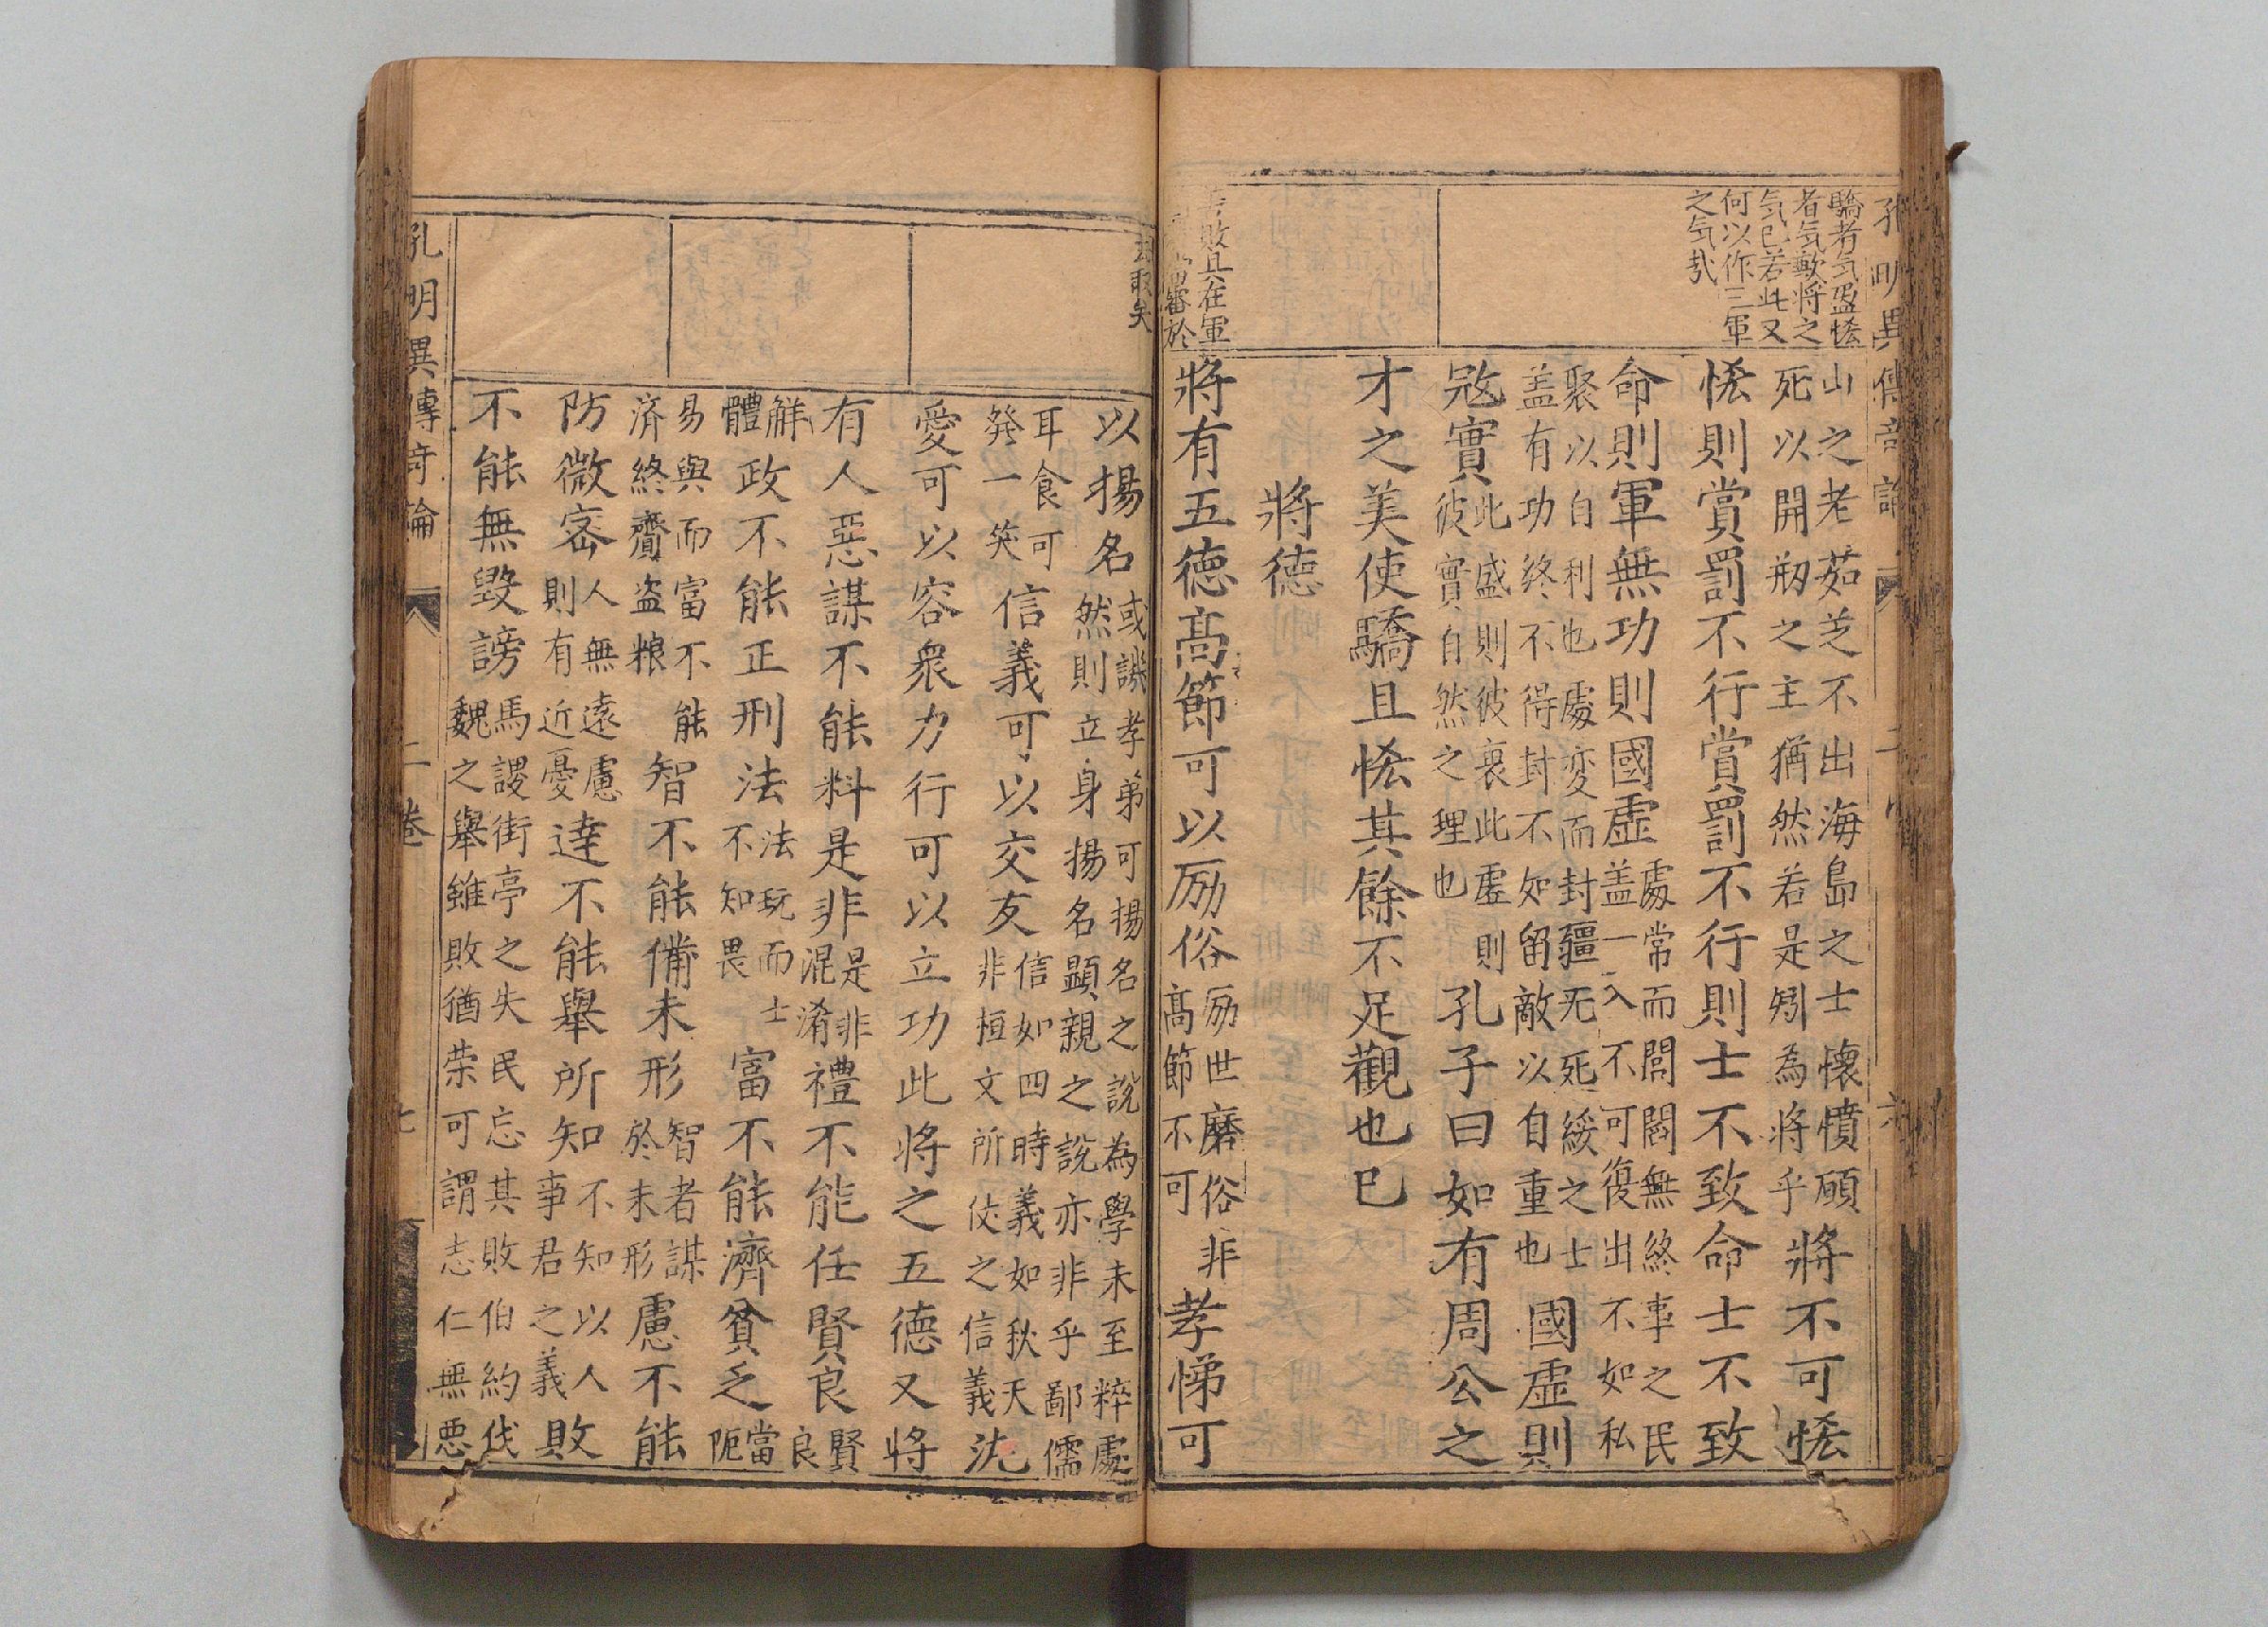 驕者気盈恡
者気歉将之
気已若此又
何以作三軍
之気㢤
山之老茹芝不出海島之士懷憤願
死以開剏之主猶然若是矧為將乎
將不可恡
恡則賞罰不行賞罰不行則士不致命士不致
命則軍無功則國虛
處常而閭閻無終事之民
盖一入不可復出不如私
聚以自利也處変而封疆无死綏之士
盖有功终不得封不如留敵以自重也
國虛則
㓂實
此盛則彼衰此虛則
彼實自然之理也
孔子曰如有周公之
才之美使驕且恡其餘不足觀也已
將徳
敗具在軍
審於
將有五徳高節可以励俗
励世磨俗非
高節不可
孝悌可
去取矣
以揚名
或譏孝弟可揚名之説為學未至粹處
然則立身揚名顯親之説亦非乎鄙儒
耳食可
発一笑
信義可以交友
信如四時義如秋天
非桓文所仗之信義
沈
愛可以容衆力行可以立功此将之五德又将
有人惡謀不能料是非
是非
混淆
禮不能任賢良
賢
良
解
體
政不能正刑法
法玩而士
不知畏
富不能濟貧乏
當
阨
易與而富不能
済終齎盗粮
智不能備未形
智者謀
於未形
慮不能
防微宻
人無遠慮
則有近憂
達不能舉所知
不知以人
事君之義
敗
不能無毀謗
馬謖街亭之失民忘其敗伯約伐
魏之舉雖敗猶荣可謂志仁無悪
孔明異傳奇論
二卷
七